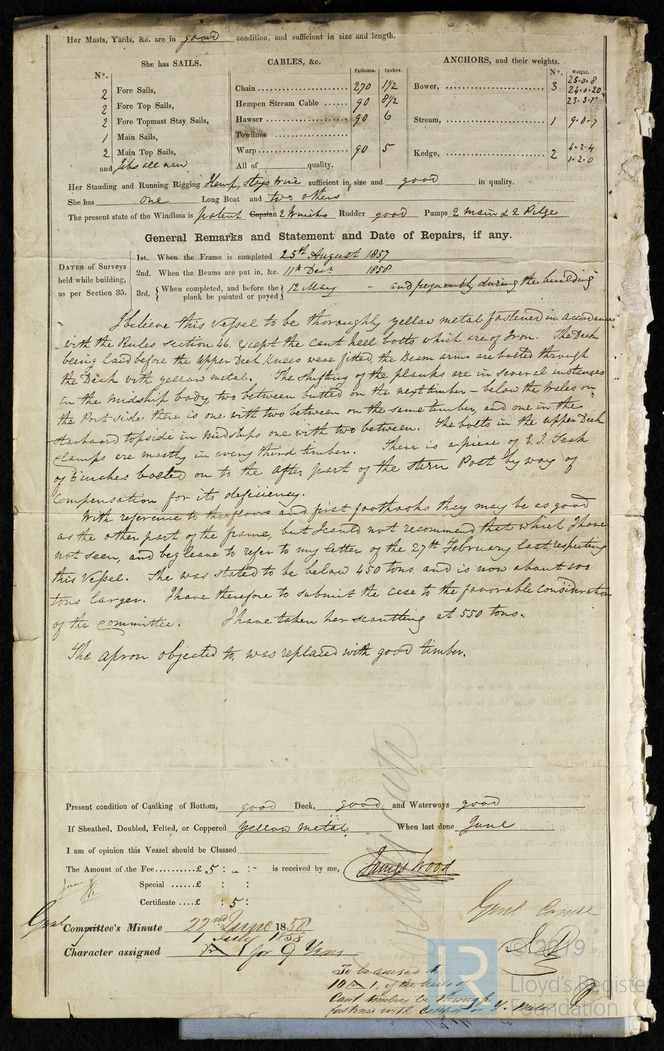 Her Masts, Yards, &c. are in good condition, and sufficient in size and length.
She has SAILS.
CABLES, &c.
ANCHORS, and their weights.
Nº.
Fathoms.
Inches.
Nº.
Weight.
2 Fore Sails,
2 Fore Top Sails,
2 Fore Topmast Stay Sails,
1 Main Sails,
2 Main Top Sails,
and Jibs all new
Chain 270 1 1/2
Hempen Stream Cable 90 8 1/2
Hawser 90 6
Towlines
Warp 90 5
All of quality.
Bower, 3 25.0.8
24.0.20
23.3.1
Stream, 1 9.0.7
Kedge, 2 4.2.4
1.2.0
Her Standing and Running Rigging Hemp, Stays wire sufficient in size and good in quality.
She has one Long Boat and two others
The present state of the Windlass is patent Capstan 2 Winches Rudder good Pumps 2 main & 2 Bilge
General Remarks and Statement and Date of Repairs, if any.
DATES of Surveys held while building, as per Section 35.
1st. When the Frame is completed 25th August 1857
2nd. When the Beams are put in, &c. 11th Decr 1858
3rd, {When completed, and before the plank be painted or payed} 12 May - and frequently during the building
I believe this vessel to be thoroughly yellow metal fastened in accordance
with the Rules section 46, except the Cant heel bolts which are of Iron. The Deck
being laid before the upper Deck Knees were fitted, the Beam arms are bolted through
the Deck with yellow metal. The shifting of the planks are in several instances
in the midship body, two between butted on the next timber - below the Wales on
the Port side there is one with two between on the same timber, and one in the
starboard topside in midships one with two between. The bolts in the upper Deck
Clamps are mostly in every third timber. There is a piece of E. I. Teak
of 5 inches bolted on to the after part of the stern Post by way of
Compensation for its deficiency.
With reference to the floors and first foothooks they may be as good
as the other part of the frame, but I could not recommend that which I have
not seen, and beg leave to refer to my letter of the 27th February last, respecting
this vessel. She was stated to be below 450 tons and is now about 100
tons larger. I have therefore to submit the case to the favorable consideration
of the committee. I have taken her scantling at 550 tons.
The apron objected to, was replaced with good timber.
Present condition of Caulking of Bottom, good Deck, good and Waterways good
If Sheathed, Doubled, Felted, or Coppered Yellow metal When last done June
I am of opinion this Vessel should be Classed
The Amount of the Fee £ 5 : - : - is received by me,
James Wood
Special £ : :
Certificate £ : 5 :
Committee's Minute 22nd June 1858
1 July 1858
Character assigned A 1 for 9 Years
To be classed A
10 A 1, if the heels of
Cant timbers be through
fastened with Copper or Y. Metal
©2019
LR
Lloyd's Register
Foundation